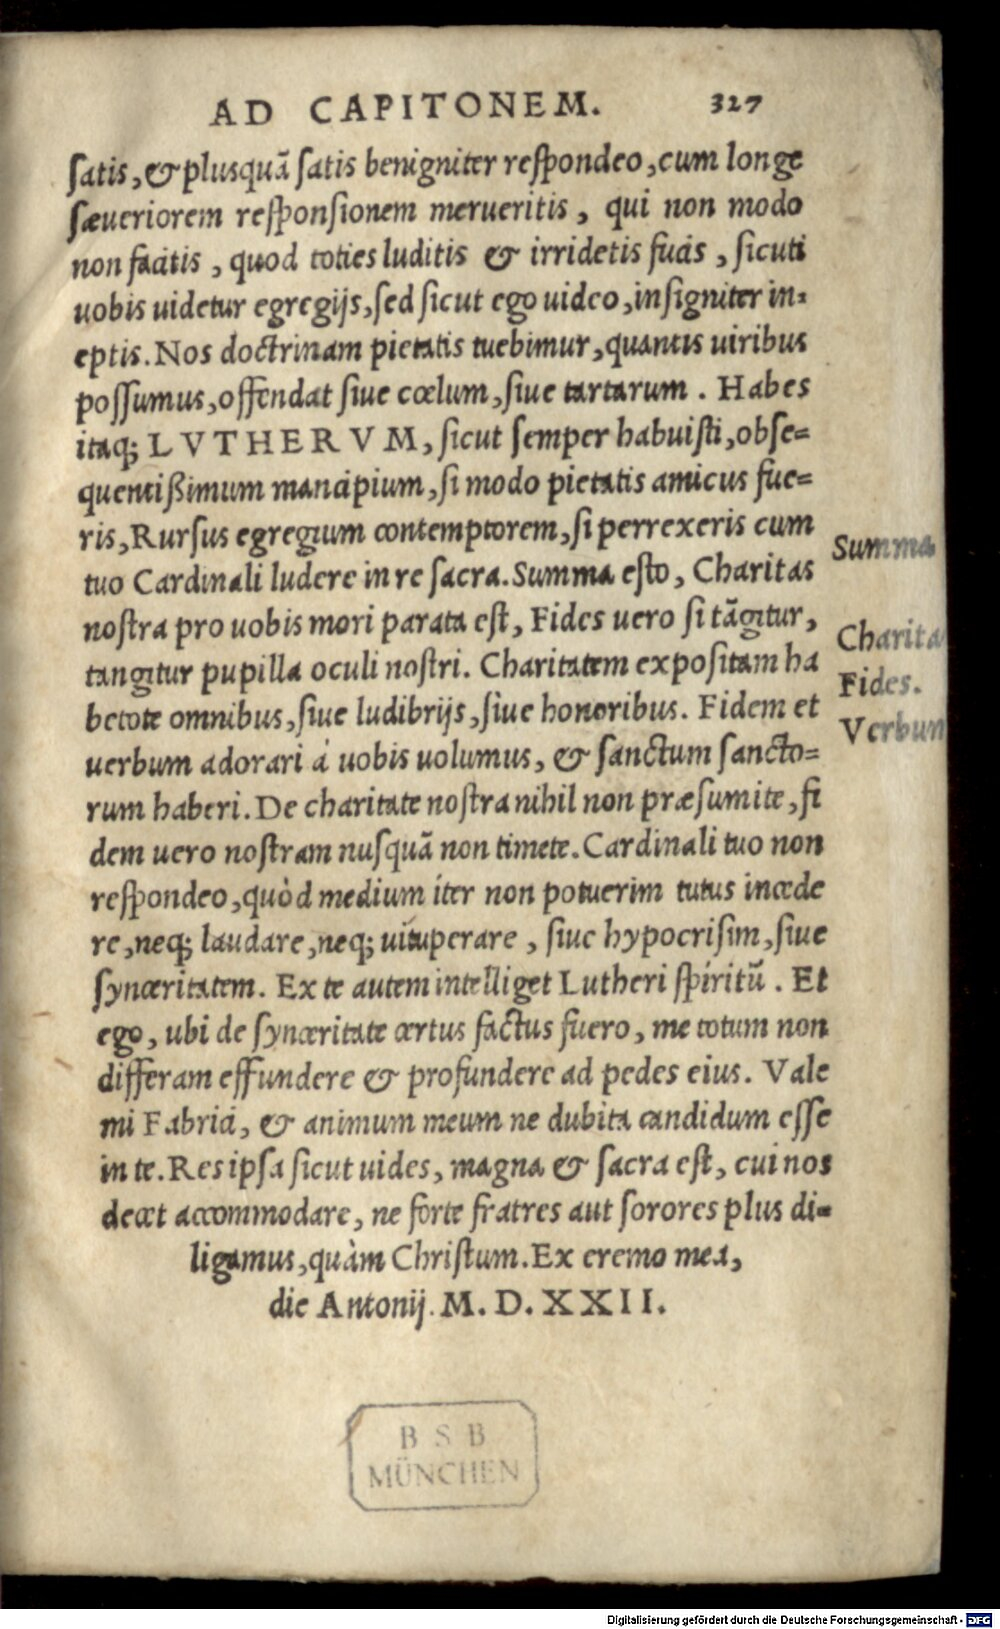 AD CAPITONEM. 327
satis, & plusquā satis benigniter respondeo, cum longe
sæueriorem responsionem merueritis, qui non modo
non facitis, quod toties luditis & irridetis fucis, sicuti
uobis uidetur egregijs, sed sicut ego uideo, insigniter in-
eptis. Nos doctrinam pietatis tuebimur, quantis uiribus
possumus, offendat siue cœlum, siue tartarum. Habes
itaq; LVTHERVM, sicut semper habuisti, obse=
quentißimum mancipium, si modo pietatis amicus fue=
ris, Rursus egregium contemptorem, si perrexeris cum
tuo Cardinali ludere in re sacra. Summa esto, Charitas
Summa
nostra pro uobis mori parata est, Fides uero si tāgitur,
Charita
tangitur pupilla oculi nostri. Charitatem expositam ha
Fides.
betote omnibus, siue ludibrijs, siue honoribus. Fidem et
Verbum
uerbum adorari à uobis uolumus, & sanctum sancto=
rum haberi. De charitate nostra nihil non præsumite, fi
dem uero nostram nusquā non timete. Cardinali tuo non
respondeo, quòd medium iter non potuerim tutus incede
re, neq; laudare, neq; uituperare, siue hypocrisim, siue
synceritatem. Ex te autem intelliget Lutheri spiritū. Et
ego, ubi de synceritate certus factus fuero, me totum non
differam effundere & profundere ad pedes eius. Vale
mi Fabrici, & animum meum ne dubita candidum esse
in te. Res ipsa sicut uides, magna & sacra est, cui nos
decet accommodare, ne forte fratres aut sorores plus di-
ligamus, quàm Christum. Ex eremo mea,
die Antonij. M. D. XXII.
B S B
MÜNCHEN
Digitalisierung gefördert durch die Deutsche Forschungsgemeinschaft - DFG